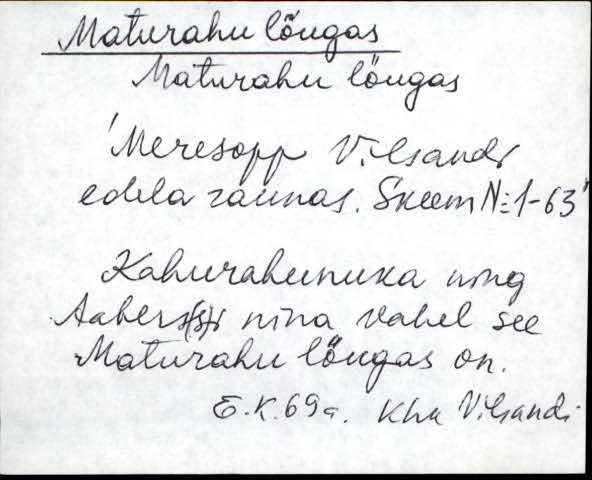 Maturahu lõugas
Maturahu lõugas
'Meresopp Vilsandi
edela rannas. Skeem N: 1-63'
Kahurahunuka ning
nina vahel see
Maturahu lõugas on.
E.K. 69 a. Kha Vilsandi